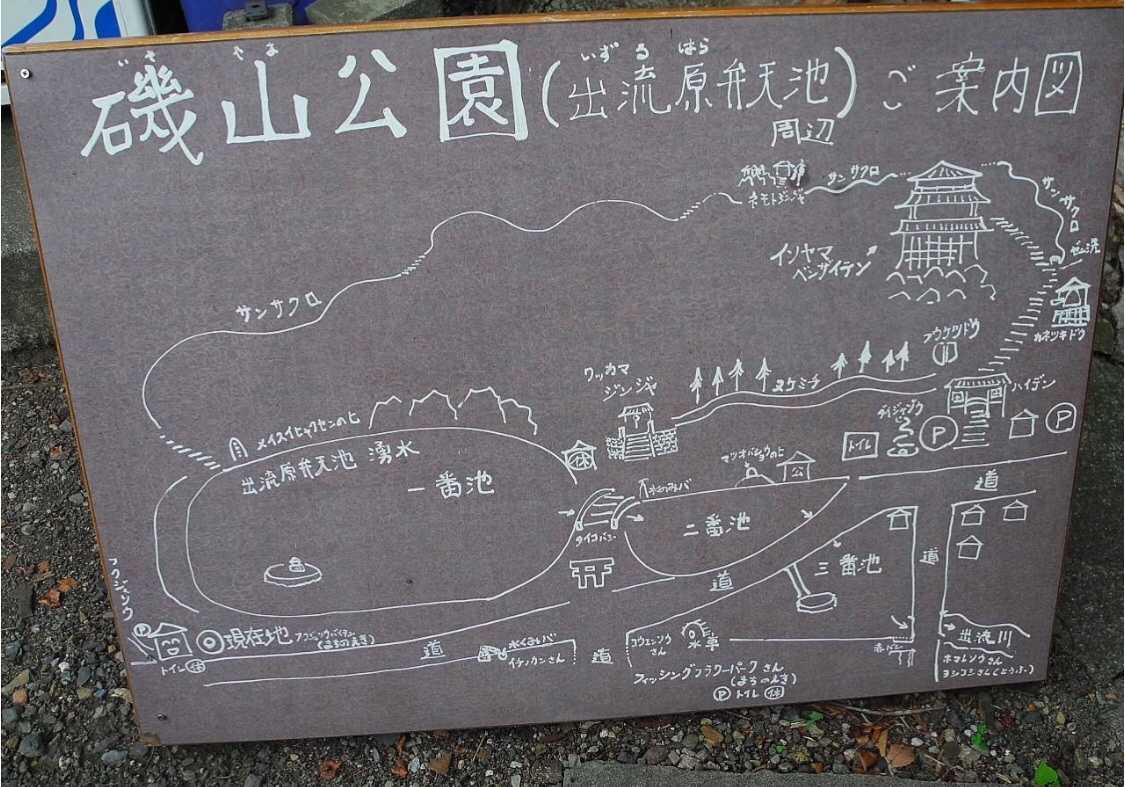 いそ やま
磯山公園
いずるはら
(出流原弁天池)
周辺
ご案内図
ネモトジンジャ
サンサクロ
サンサクロ
イソヤマ
ベンザイテン
カネツキドウ
サンサクロ
フウケツドウ
ワッカマ
ジンジャ
ヌケミチ
ハイデン
トイレ
P
P
メイスイヒャクセンのヒ
出流原弁天池 湧水
一番池
休
水のみバ
マツオバショウのヒ
公
タイコバシ
二番池
道
三番池
道
道
P
トイレ 休
現在地
(まちのえき)
道
水くみバ
イケノカンさん
道
コウエンソウ
さん
水車
フィッシングフラワーパークさん
(まちのえき)
P トイレ 休
赤バシ
出流川
ホマレソウさん
ヨシコシさん(とうふ)